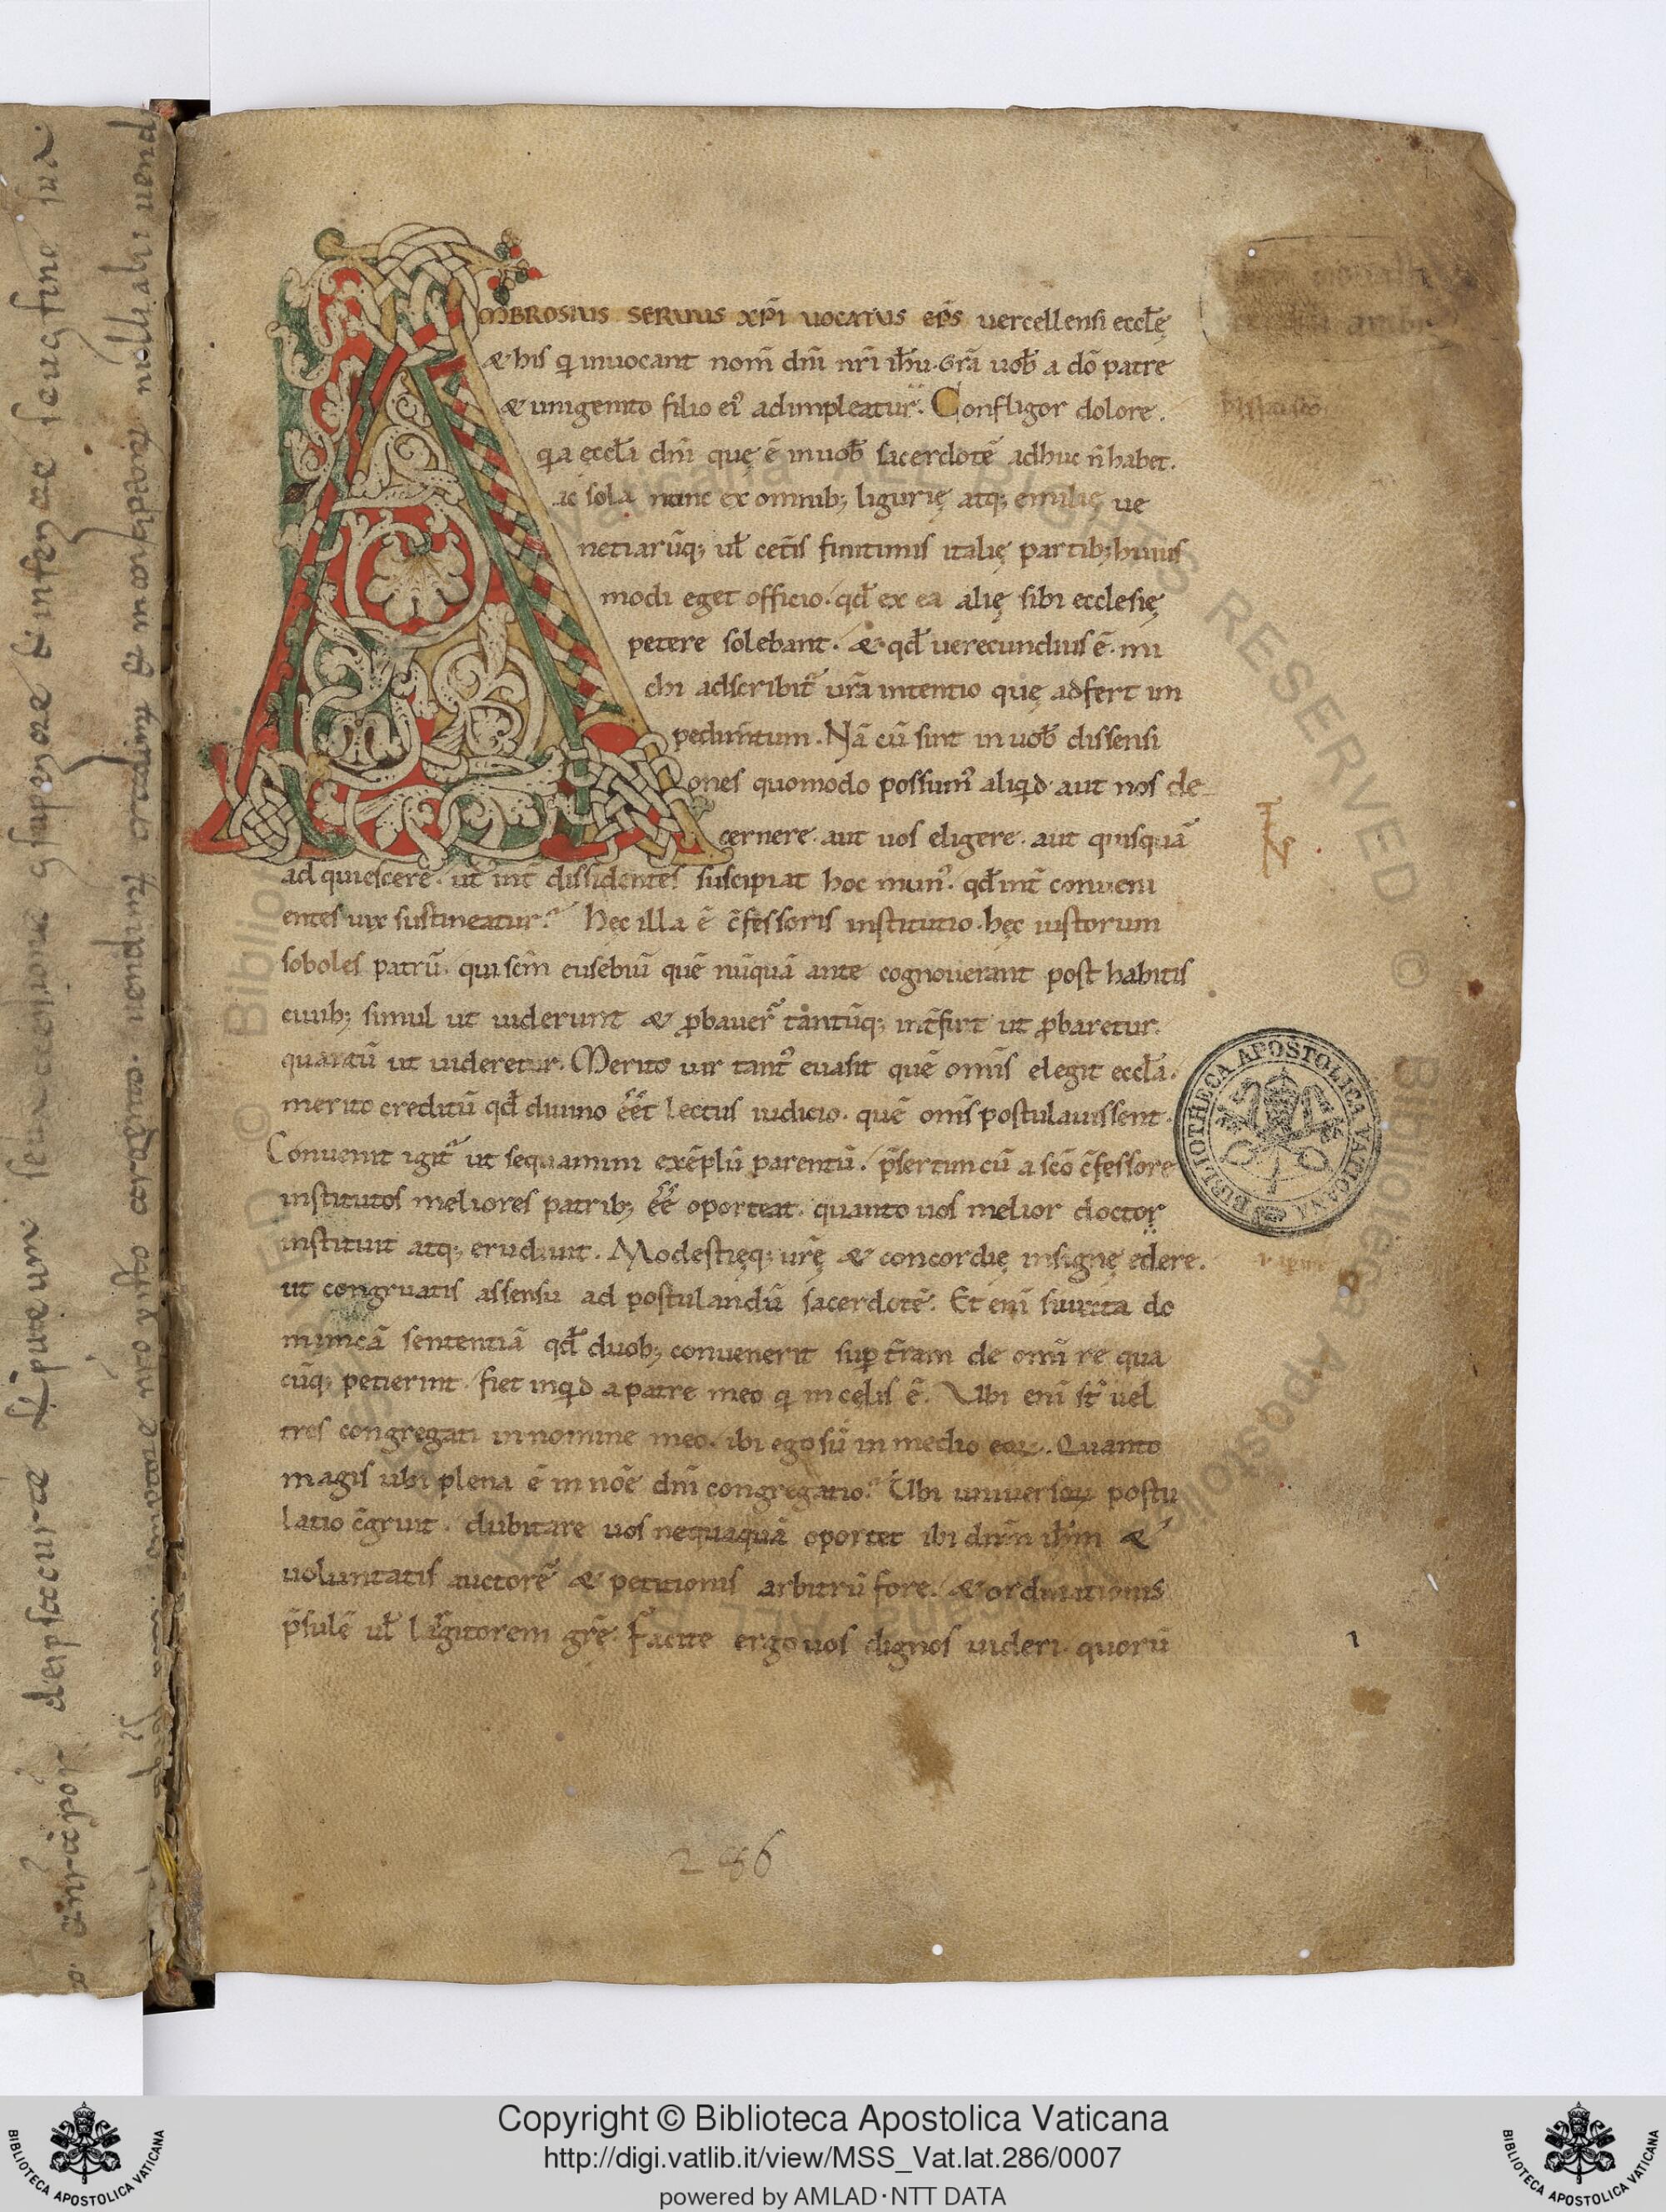 AMBROSIUS SERVUS XPĪ VOCATUS EPS̄ uercellensi eccłę
& his q inuocant nom̄ dn̄i nr̄i ih̄u. Grā uob̄ a dō patre
& unigenito filio ei᾽ adimpleatur. Confligor dolore.
q̇a ęccła dn̄i quę ē in uob̄ sacerdotē adhuc n̄ habet.
ac sola nunc ex omnib; ligurię atq; emilię ue
netiarūq; ul̄ cet̄is finitimis italię partib; huius
modi eget officio. qd̄ ex ea alię sibi ecclesię
petere solebant. & qd̄ uerecundius ē. mi
chi adscribit᷑ ur̄a intentio quę adfert im
pedim̄tum. Nā cū sint in uob̄ dissensi
ones quomodo possum᾽ aliqd aut nos de
cernere. aut uos eligere. aut quisquā
adquiescere. ut int̄ dissidentes suscipiat hoc mun᾽. qd̄ int̄ conueni
entes uix sustineatur? Hęc illa ē c̄fessoris institutio. hęc iustorum
soboles patrū. qui scm̄ eusebiū quē nūquā ante cognouerant post habitis
ciuib; simul ut uiderunt & ꝓbauer̄ tantūq; int̄fuit ut ꝓbaretur.
quantū ut uideretur. Merito uir tant᾽ euasit quē omīs elegit eccła.
merito creditū qd̄ diuino eēt lectus iudicio. quē omīs postulauissent.
Conuenit igit᷑ ut sequamini exēplū parentū. p̄sertim cū a scō c̄fessore
institutos meliores patrib; eē oporteat. quanto uos melior doctor
instituit atq; erudiuit. Modestięq; urę̄ & concordię insignę edere.
ut congruatis assensu ad postulandū sacerdotē. Et eni᷑ iuxta do
minicā sententiā qd̄ duob; conuenerit sup t̄ram de omī re qua
cūq; petierint. fiet inqd a patre meo q in cęlis ē. Ubi eni᷑ st̄ uel
tres congregati in nomine meo. ibi ego sū in medio eoꝝ. Quanto
magis ubi plena ē in nōe dn̄i congregatio? Ubi uniuersoꝝ postu
latio c̄gruit. dubitare uos nequaquā oportet ibi dnm̄ ih̄m &
uoluntatis auctorē & petitionis arbitrū fore. & ordinationis
p̄sulē ul̄ largitorem gr̄ę. Facite ergo uos dignos uideri. quorū
1
286
BIBLIOTHECA APOSTOLICA VATICANA
Copyright © Biblioteca Apostolica Vaticana
http://digi.vatlib.it/view/MSS_Vat.lat.286/0007
powered by AMLAD·NTT DATA
BIBLIOTECA APOSTOLICA VATICANA
BIBLIOTECA APOSTOLICA VATICANA